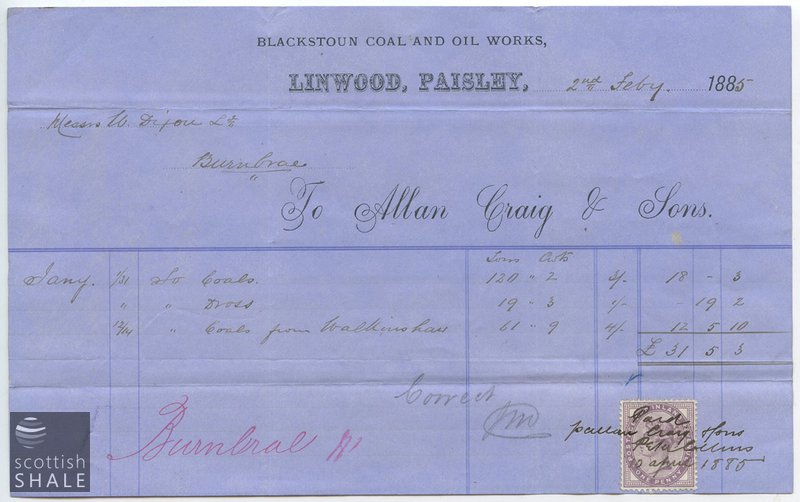 BLACKSTOUN COAL AND OIL WORKS,
LINWOOD, PAISLEY, 2nd Feby. 1885
Messrs W. Dixon Ld
Burnbrae
To Allan Craig & Sons.
Tons Cwts
Jany. 1/31 To Coals. 120 " 2 3/- 18 - 3
" " Dross 19 " 3 1/- - 19 2
12/14 " Coals from Walkinshaw 61 " 9 4/- 12 5 10
£ 31 5 3
Correct
Burnbrae
INLAND
ONE PENNY
Paid
pallan Craig & Sons
Peter Collins
10 april 1885
scottish
SHALE